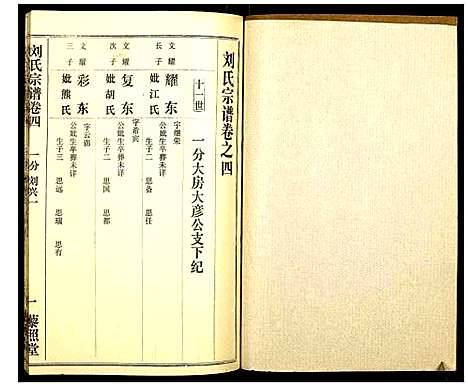 刘氏宗谱卷之四
一分大房大彦公支下纪
十一世
文耀长子
耀东
字继荣
妣江氏
公妣生卒葬未详
生子二 思备 思任
文耀次子
复东
字希宾
妣胡氏
公妣生卒葬未详
生子二 思国 思都
文耀三子
彩东
字云锦
妣熊氏
公妣生卒葬未详
生子三 思远 思瑞 思有
刘氏宗谱卷四
一分 刘兴一
一 藜照堂